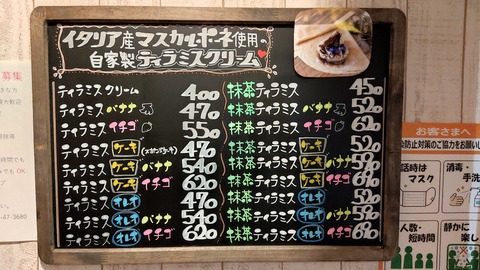 イタリア産マスカルポーネ使用の
自家製ティラミスクリーム
ティラミスクリーム 400
ティラミスバナナ 470
ティラミスイチゴ 550
ティラミスケーキ 470
ティラミスケーキバナナ 540
ティラミスケーキイチゴ 620
ティラミスオレオ 470
ティラミスオレオバナナ 540
ティラミスオレオイチゴ 620
抹茶ティラミス 450
抹茶ティラミスバナナ 520
抹茶ティラミスイチゴ 620
抹茶ティラミスケーキ 520
抹茶ティラミスケーキバナナ 590
抹茶ティラミスケーキイチゴ 690
抹茶ティラミスオレオ 520
抹茶ティラミスオレオバナナ 590
抹茶ティラミスオレオイチゴ 690
募集
OK
47-3680
お客さまへ
防止対策のご協力をお願い
話時は
マスク
消毒・
手洗
人数・
短時間
静かに
楽し